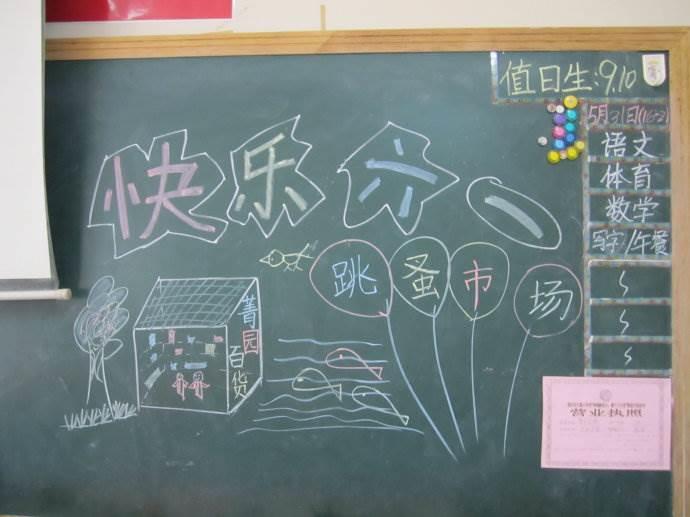 值日生:9.10
快乐六一
5月31日(16-2)
语文
体育
数学
写字/午餐
跳蚤市场
菁园百货
营业执照